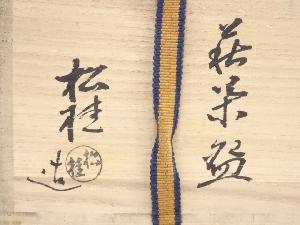 萩茶盌
松桂造
松桂